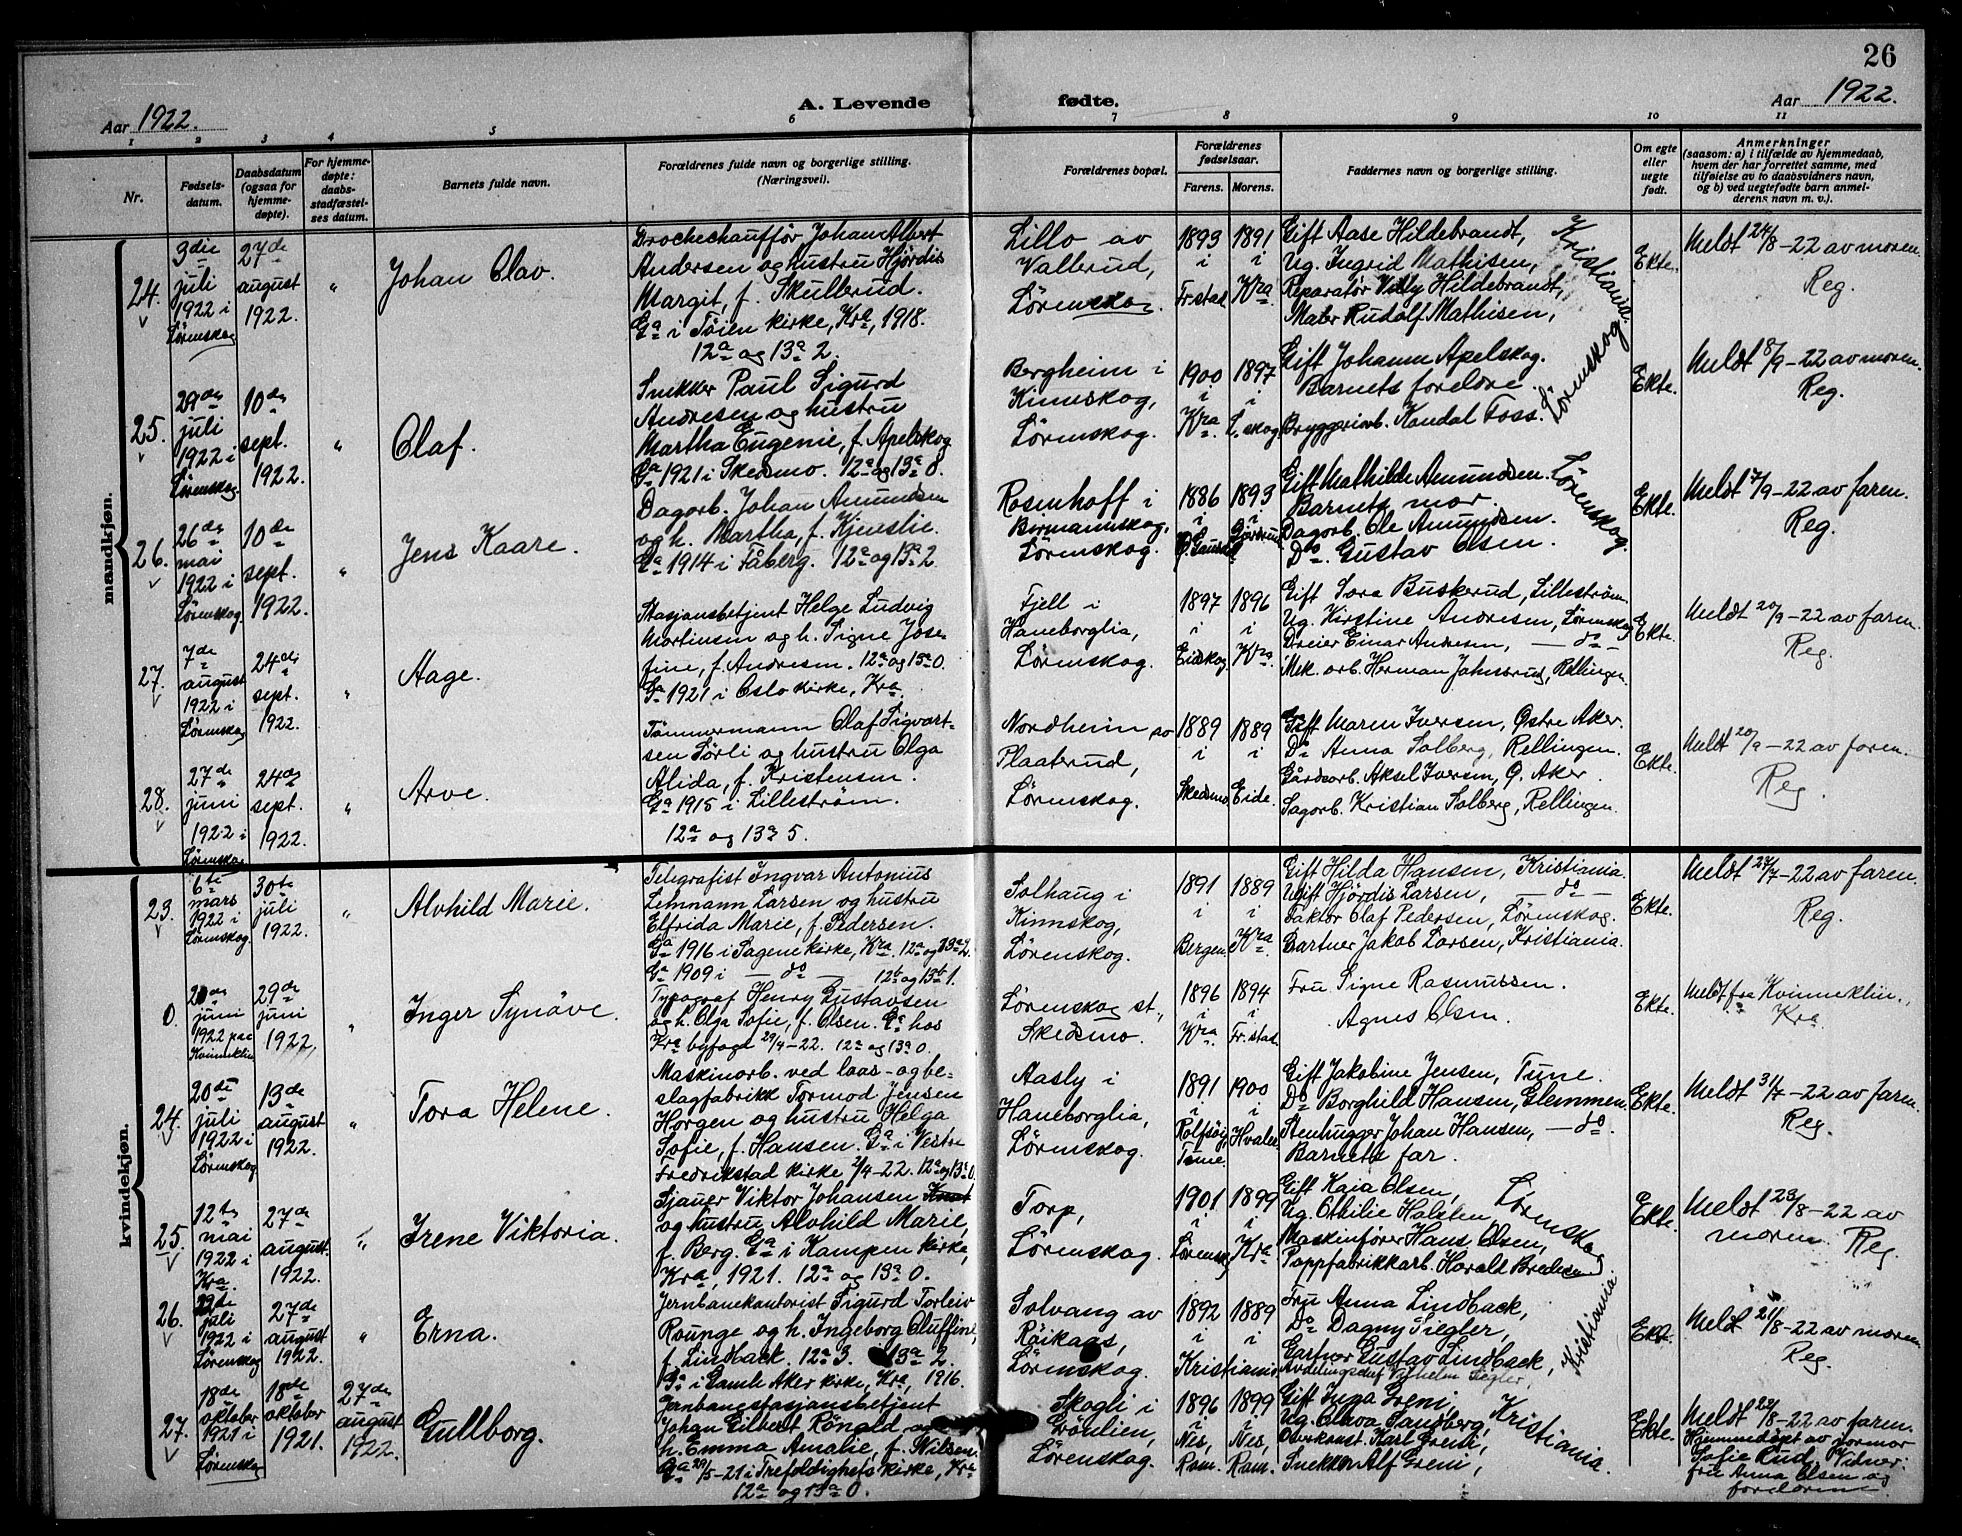 26
Aar 1922.
A. Levende fødte.
Aar 1922.
1 2 3 4 5 6 7 8 9 10 11
Nr.
Fødsels-
datum.
Daabsdatum
(ogsaa for
hjemme-
døpte).
For hjemme-
døpte:
daabs-
stadfæstel-
ses datum.
Barnets fulde navn.
Forældrenes fulde navn og borgerlige stilling.
(Næringsvei).
Forældrenes bopæl.
Forældrenes
fødselsaar.
Farens. Morens.
Faddernes navn og borgerlige stilling.
Om egte
eller
uegte
født.
Anmerkninger
(saasom: a) i tilfælde av hjemmedaab,
hvem der har forrettet samme, med
tilføielse av to daabsvidners navn,
og b) ved uegtefødte barn anmel-
derens navn m. v.).
mandkjøn.
24.
3die
juli
1922 i
Lørenskog
27de
august
1922.
"
Johan Olav.
Drochechauffør Johan Albert
Andersen og hustru Hjørdis
Margit, f. Skullerud.
Ga i Tøien kirke, Kra, 1918.
12a og 13a 2.
Lillo av
Valbrud,
Lørenskog.
1893
i
Fr.stad
1891
i
Kra
Gift Aase Hildebrandt,
Ug. Ingrid Mathisen,
Reparatør Willy Hildebrandt,
Maler Rudolf Mathisen,
Kristiania.
Ekte.
Meldt 24/8-22 av moren.
Reg.
25.
29de
juli
1922 i
Lørenskog
10de
sept.
1922.
"
Olaf.
Snekker Paul Sigurd
Andresen og hustru
Martha Eugenie, f. Apelskog
Ga 1921 i Skedsmo. 12a og 13a 0.
Bergheim i
Kinnskog,
Lørenskog.
1900
i
Kra.
1897
i
L.skog
Gift Johanne Apelskog.
Barnets foreldre
Bryggeriarb. Kandal Foss.
Lørenskog
Ekte.
Meldt 8/9-22 av moren.
Reg.
26.
26de
mai
1922 i
Lørenskog
10de
sept.
1922.
"
Jens Kaare.
Dagarb. Johan Amundsen
og h. Martha, f. Kjenslie.
Ga 1914 i Fåberg. 12a og 13a 2.
Rosenhoff i
Bormannskog,
Lørenskog.
1886
i
1893
i
Gift Mathilde Amundsen.
Barnets mor.
Dagarb. Ole Amundsen.
Do. Gustav Olsen.
Lørenskog.
Ekte.
Meldt 7/9-22 av faren.
Reg.
27.
7de
august
1922 i
Lørenskog
24de
sept.
1922.
"
Aage.
Stasjonsbetjent Helge Ludvig
Mortinsen og h. Signe Jose-
fine, f. Andresen. 12a og 13a 0.
Ga 1921 i Oslo kirke, Kra.
Fjell i
Haneborglia,
Lørenskog.
1897
i
Eidskog
1896
i
Kra.
Gift Sara Buskerud, Lillestrøm.
Ug. Kirstine Andresen, Lørenskog
Dreier Einar Andresen, — do —
Mek. arb. Herman Jahnsrud, Rellingen.
Ekte.
Meldt 20/9-22 av faren.
Reg.
28.
27de
juni
1922 i
Lørenskog
24de
sept.
1922.
"
Arve.
Tømmermann Olaf Sigvart-
sen Sørli og hustru Olga
Alida, f. Kristensen.
Ga 1915 i Lillestrøm.
12a og 13a 5.
Nordheim av
Plaaterud,
Lørenskog.
1889
i
Skedsmo
1889
i
Eide.
Gift Maren Iversen, Østre Aker.
Do Anna Solberg, Rellingen.
Gårdsarb. Aksel Iversen, Ø. Aker.
Sagarb. Kristian Solberg, Rellingen.
Ekte.
Meldt 20/9-22 av faren.
Reg.
kvindekjøn.
23.
6te
mars
1922 i
Lørenskog.
30te
juli
1922.
"
Alvhild Marie.
Telegrafist Ingvar Antonius
Lehmann Larsen og hustru
Elfrida Marie, f. Pedersen.
Ga 1916 i Sagene kirke, Kra. 12a og 13a 2.
Ga 1909 i — do — 12b og 13b 1.
Solhaug i
Kinnskog,
Lørenskog.
1891
i
Bergen.
1889
i
Kra.
Gift Hilda Hansen, Kristiania.
Ugift Hjørdis Larsen, — do —
Faktor Olaf Pedersen, Lørenskog.
Gartner Jakob Larsen, Kristiania.
Ekte.
Meldt 27/7-22 av faren.
Reg.
0.
juni
1922 paa
Kvinneklin.
29de
juni
1922,
"
Inger Synøve.
Typograf Henry Gustavsen
og h. Olga Sofie, f. Olsen. Ga hos
Kra byfogd 29/4-22. 12a og 13a 0.
Lørenskog st,
Skedsmo.
1896
i
Kra.
1894
i
Fr.stad
Fru Signe Rasmussen.
Agnes Olsen.
Ekte.
Meldt fra Kvinneklin.,
Kra.
24.
20de
juli
1922 i
Lørenskog
13de
august
1922.
"
Tora Helene.
Maskinarb. ved laas- og be-
slagfabrikk Tormod Jensen
Horgen og hustru Helga
Sofie, f. Hansen. Ga i Vestre
Fredrikstad kirke 2/4-22. 12a og 13a 0.
Aasly i
Haneborglia,
Lørenskog.
1891
i
Rolfsøy,
Tune.
1900
i
Hvaler
Gift Jakobine Jensen, Tune.
Do Borghild Hansen, Glemmen.
Stenhugger Johan Hansen, — do.
Barnets far.
Ekte.
Meldt 31/7-22 av faren.
Reg.
25.
12te
mai
1922 i
Kra.
27de
august.
1922.
"
Irene Viktoria.
Sjauer Viktor Johansen
og hustru Alvhild Marie,
f. Berg. Ga i Kampen kirke,
Kra, 1921. 12a og 13a 0.
Torp,
Lørenskog.
1901
i
Lørenskog
1899
i
Kra
Gift Kaia Olsen,
Ug. Othilie Halsten,
Maskinfører Hans Olsen,
Pappfabrikkarb. Harald Bredesen
Lørenskog
Ekte.
Meldt 23/8-22 av
moren. Reg.
26.
juli
1922 i
Lørenskog
27de
august
1922.
"
Erna.
Jernbanekontorist Sigurd Torleiv
Rounge og h. Ingeborg Oluffine,
f. Lindback. 12a 3. 13a 2.
Ga i Gamle Aker kirke, Kra, 1916.
Solvang av
Røikaas,
Lørenskog.
1892
i
1889
i
Kristiania
Fru Anna Lindback,
Do Dagny Siegler,
Gartner Gustav Lindback,
Avdelingschef Vilhelm Siegler,
Kristiania
Ekte.
Meldt 21/8-22 av moren
Reg.
27.
18de
oktober
1921 i
Lørenskog
18de
oktober
1921.
27de
august
1922.
Gullborg.
Jernbanestasjonsbetjent
Johan Gilbert Rönold og
h. Emma Amalie, f. Nilsen.
Ga 29/5-21 i Trefoldighets kirke, Kra
12a og 13a 0.
Skogli i
Grönlien,
Lørenskog.
1896
i
Nes,
Rom.
1899
i
Nes,
Rom.
Gift Inga Greni,
Ug. Olava Sandberg,
Overkonst. Karl Greni,
Snekker Alf Greni,
Kristiania.
Ekte.
Meldt 22/8-22 av faren.
Hjemmedøpt av jormor
Sofie Rud. Vidner:
fru Anna Olsen og
foreldrene